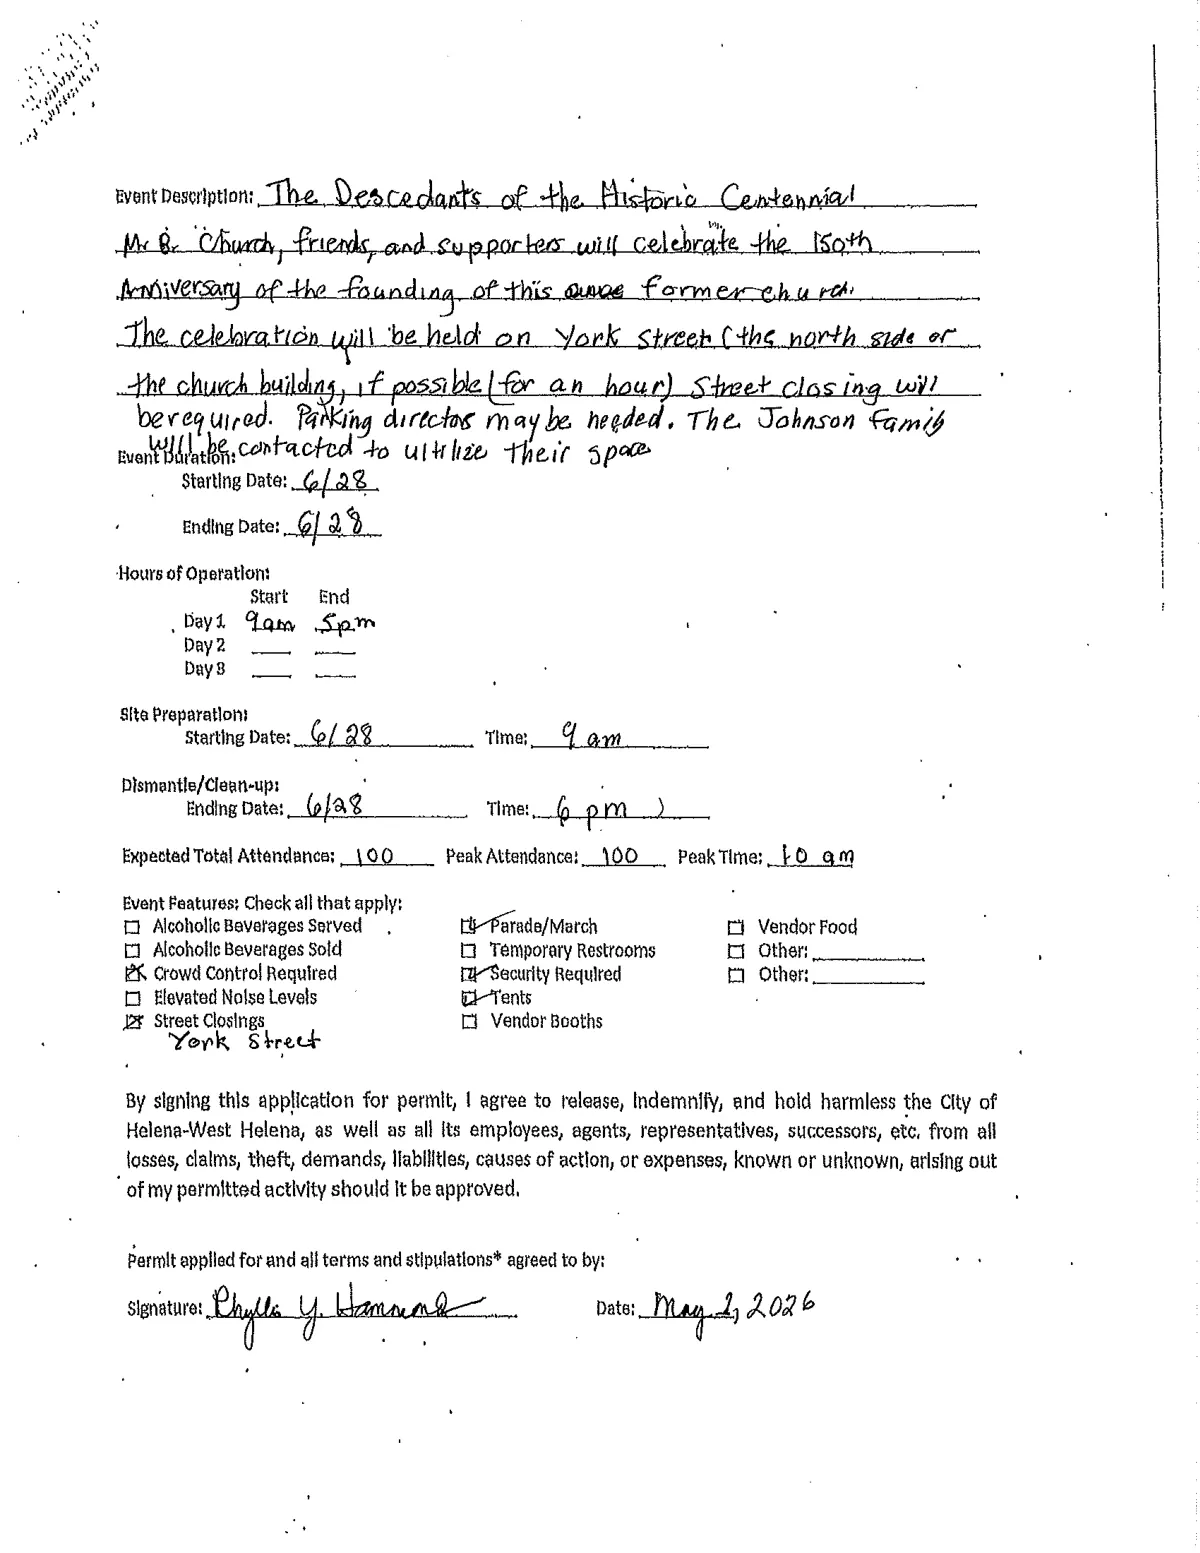 Event Description: The Descedants of the Historic Centennial
M. B. Church, friends, and supporters will celebrate the 150th
Anniversary of the founding of this former church.
The celebration will be held on York Street (the north side or
the church building, if possible (for an hour) Street closing will
be required. Parking directors may be needed. The Johnson Family
will be contacted to ultilize their space
Event Duration:
Starting Date: 6/28
Ending Date: 6/28
Hours of Operation:
Start End
Day 1 9am 5pm
Day 2
Day 3
Site Preparation:
Starting Date: 6/28 Time: 9 am
Dismantle/Clean-up:
Ending Date: 6/28 Time: 6 pm )
Expected Total Attendance: 100 Peak Attendance: 100 Peak Time: 10 am
Event Features: Check all that apply:
Alcoholic Beverages Served Parade/March Vendor Food
Alcoholic Beverages Sold Temporary Restrooms Other:
Crowd Control Required Security Required Other:
Elevated Noise Levels Tents
Street Closings Vendor Booths
York Street
By signing this application for permit, I agree to release, indemnify, and hold harmless the City of
Helena-West Helena, as well as all its employees, agents, representatives, successors, etc. from all
losses, claims, theft, demands, liabilities, causes of action, or expenses, known or unknown, arising out
of my permitted activity should it be approved.
Permit applied for and all terms and stipulations* agreed to by:
Signature: Phyllis Y. Hammond Date: May 2, 2026